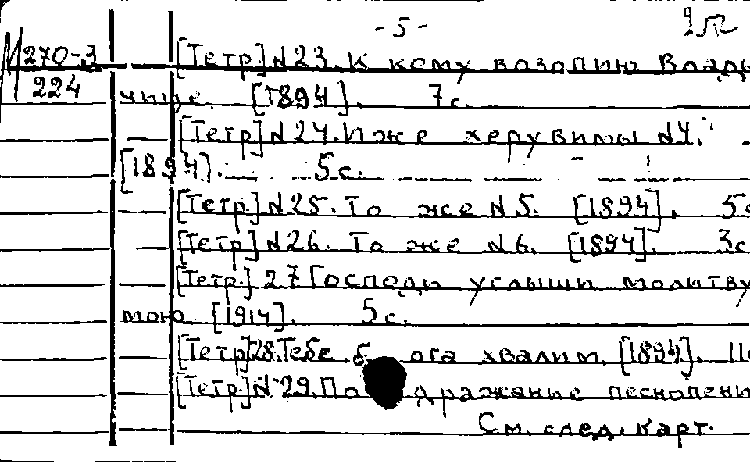 - 5 -
М 270-3 [Тетр] N 23. К кому возопию Влады
224 чице. [1894]. 7с.
[Тетр] N 24. Иже херувимы N 4.
[1894]. 5с.
[Тетр] N 25. То же N 5. [1894]. 5с
[Тетр] N 26. То же N 6. [1894]. 3с
[Тетр.] 27 Господи услыши молитву
мою [1914]. 5с.
[Тетр] 28. Тебе б ога хвалим. [1894].
[Тетр] N 29. По дражание песнопени
См. след. карт.